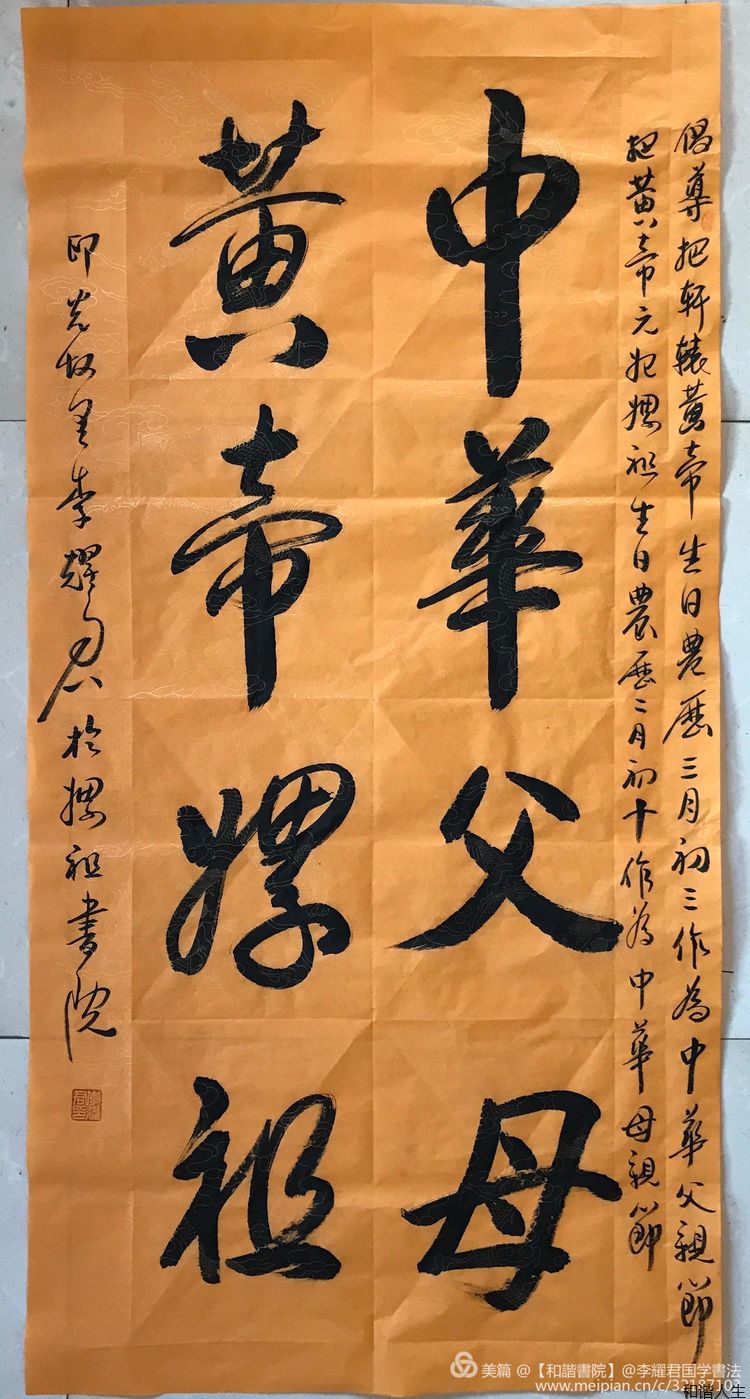 倡尊把軒轅黃帝生日農歷三月初三作為中華父親節
把黃帝元妃嫘祖生日農歷二月初十作為中華母親節
中華父母
黃帝嫘祖
李耀君於嫘祖書院
美篇 @【和諧書院】@李耀君国学書法
www.meipian.cn/c/33187103
和谐人生